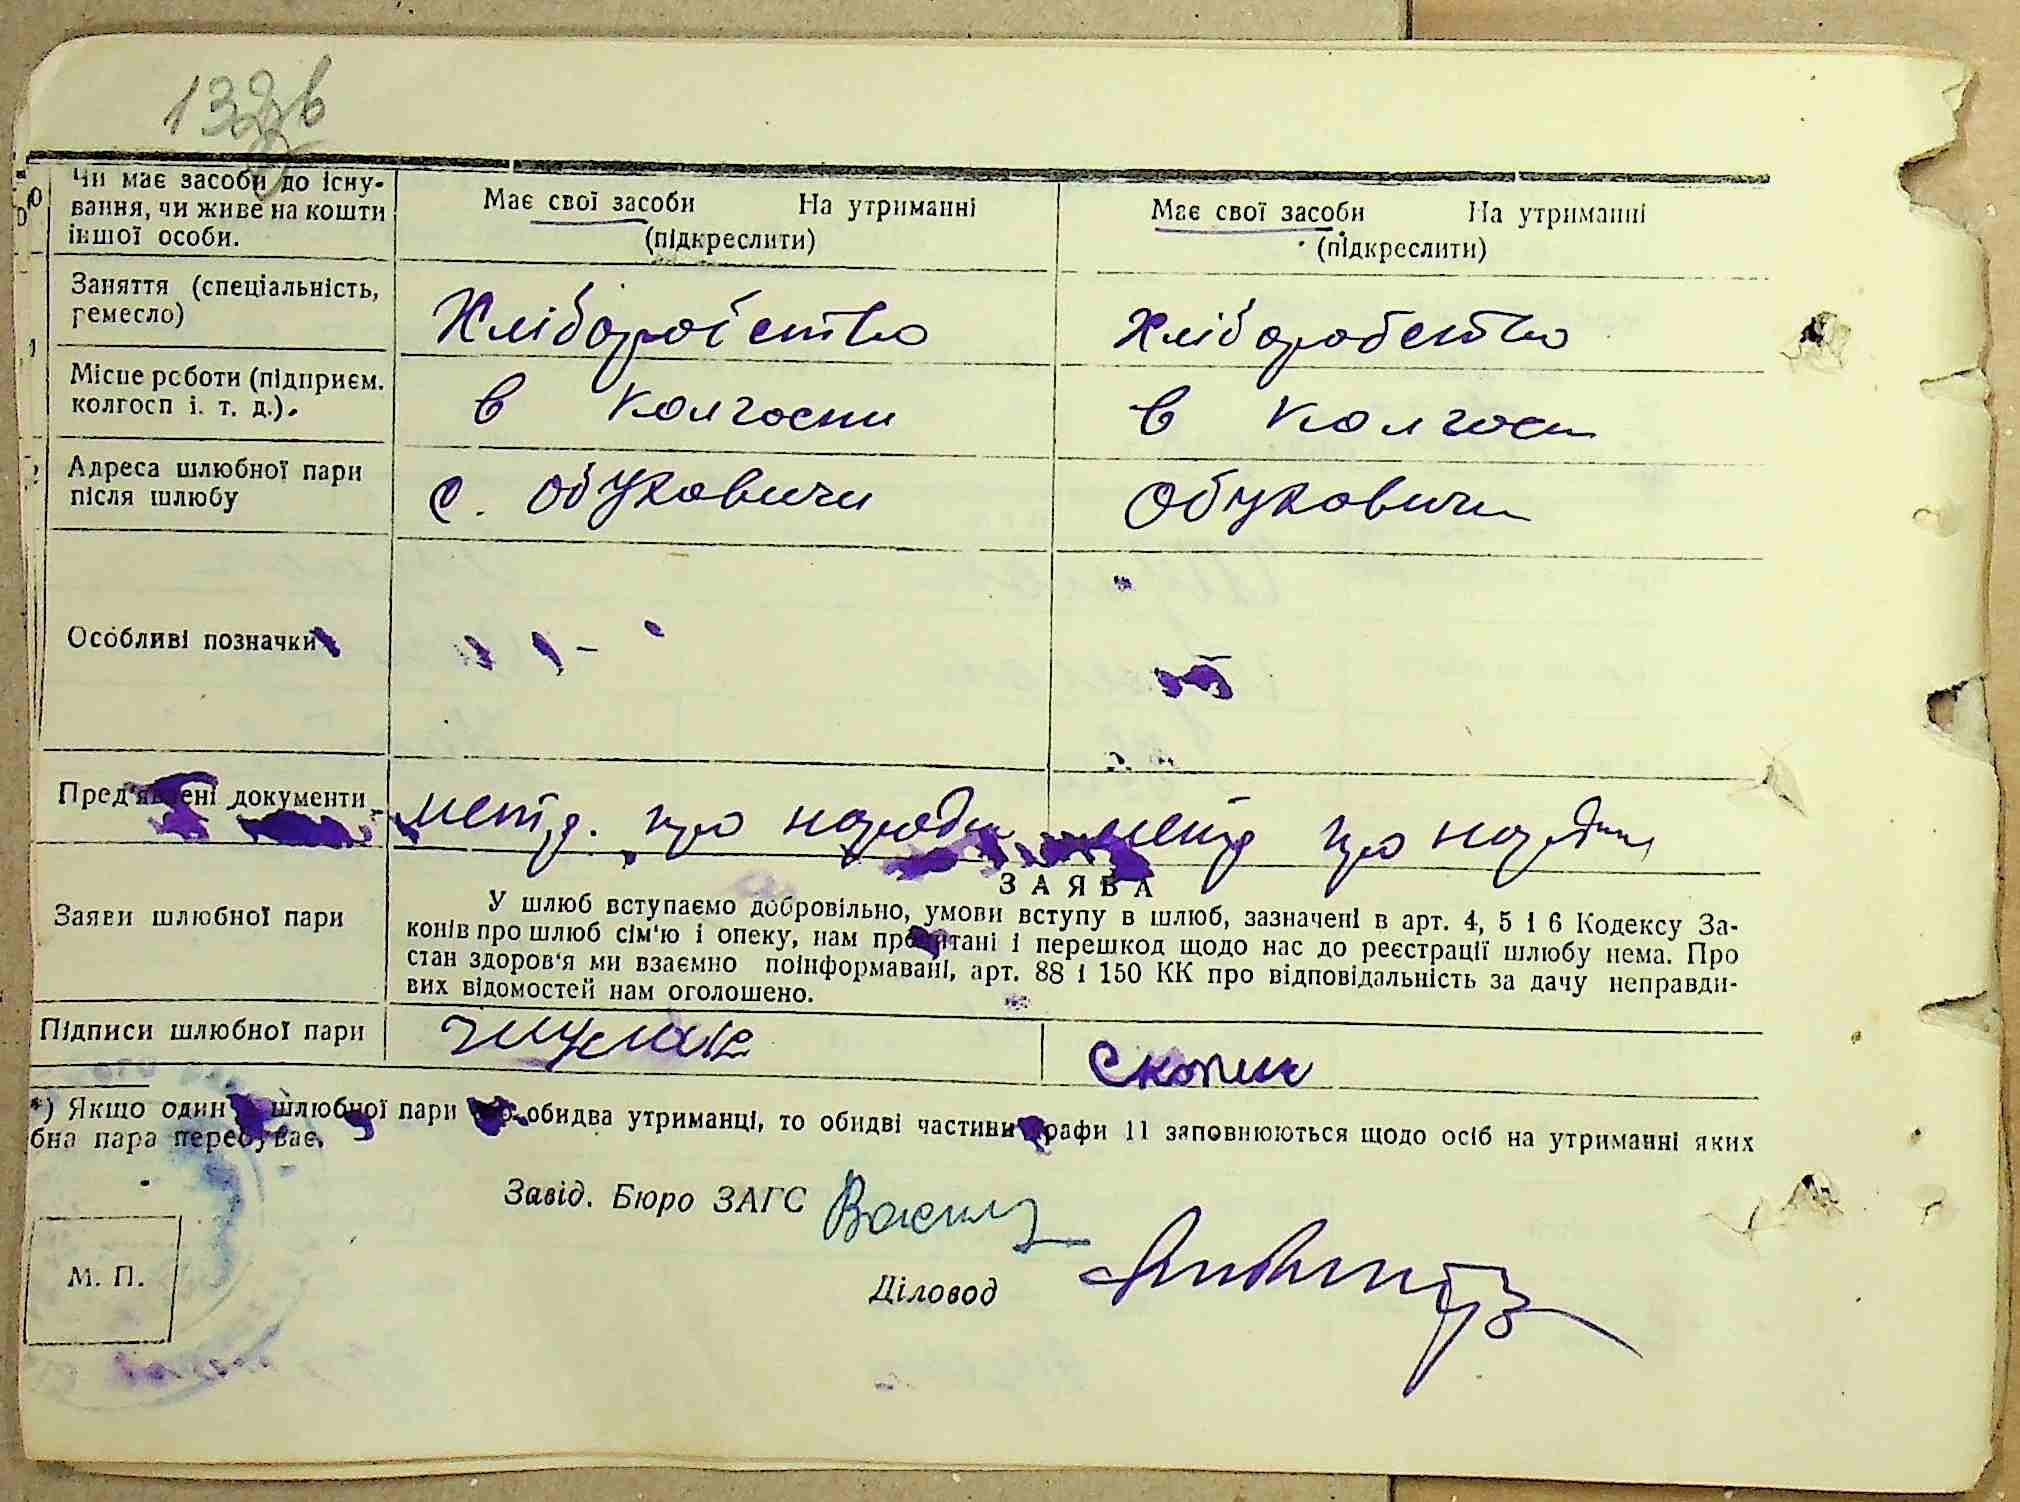 Чи має засоби до існу-
вання, чи живе на кошти
іншої особи.
Має свої засоби На утриманні
(підкреслити)
Має свої засоби На утриманні
(підкреслити)
Заняття (спеціальність,
ремесло)
Хліборобство
Хліборобство
Місце роботи (підприєм.
колгосп і. т. д.).
в колгоспи
в колгосп
Адреса шлюбної пари
після шлюбу
с. Обуховичи
Обуховичи
Особливі позначки
Пред'явлені документи
метр. про народж
метр про народж
Заяви шлюбної пари
ЗАЯВА
У шлюб вступаємо добровільно, умови вступу в шлюб, зазначені в арт. 4, 5 і 6 Кодексу За-
конів про шлюб сім'ю і опеку, нам прочитані і перешкод щодо нас до реєстрації шлюбу нема. Про
стан здоров'я ми взаємно поінформавані, арт. 88 і 150 КК про відповідальність за дачу неправди-
вих відомостей нам оголошено.
Підписи шлюбної пари
Скопич
*) Якщо один шлюбної пари обидва утриманці, то обидві частини графи 11 заповнюються щодо осіб на утриманні яких
бна пара перебуває.
Завід. Бюро ЗАГС
Діловод
М. П.